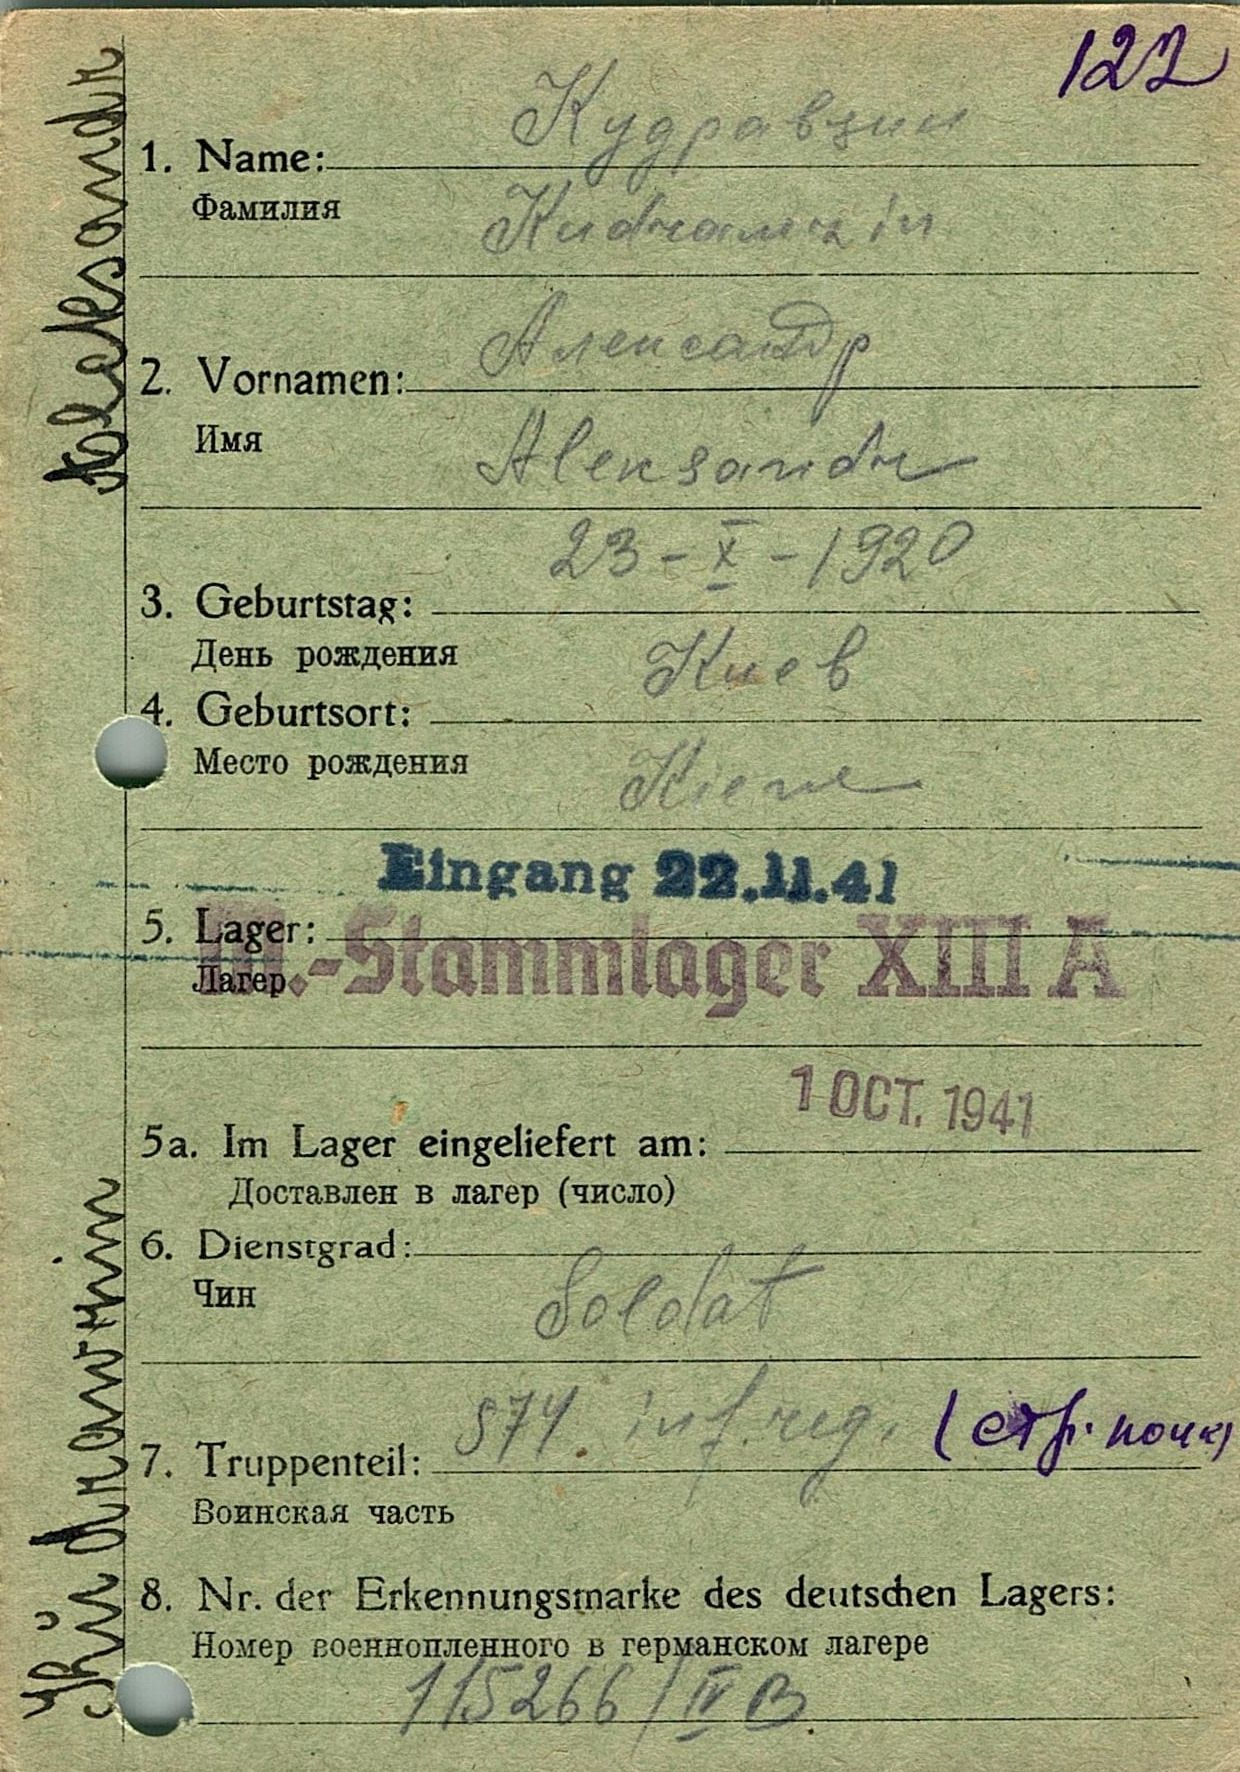 122
Кудравзин
1. Name:
Фамилия
Kudrawzin
Александр
2. Vornamen:
Имя
Aleksandr
23-X-1920
3. Geburtstag:
День рождения
Киев
4. Geburtsort:
Место рождения
Kiew
Eingang 22.11.41
5. Lager:
Лагер
M.-Stammlager XIII A
1 OCT. 1941
5a. Im Lager eingeliefert am:
Доставлен в лагер (число)
6. Dienstgrad:
Чин
Soldat
574 inf. reg. (стр. полк)
7. Truppenteil:
Воинская часть
8. Nr. der Erkennungsmarke des deutschen Lagers:
Номер военнопленного в германском лагере
115266/IV B
Kudrawzin
Aleksandr